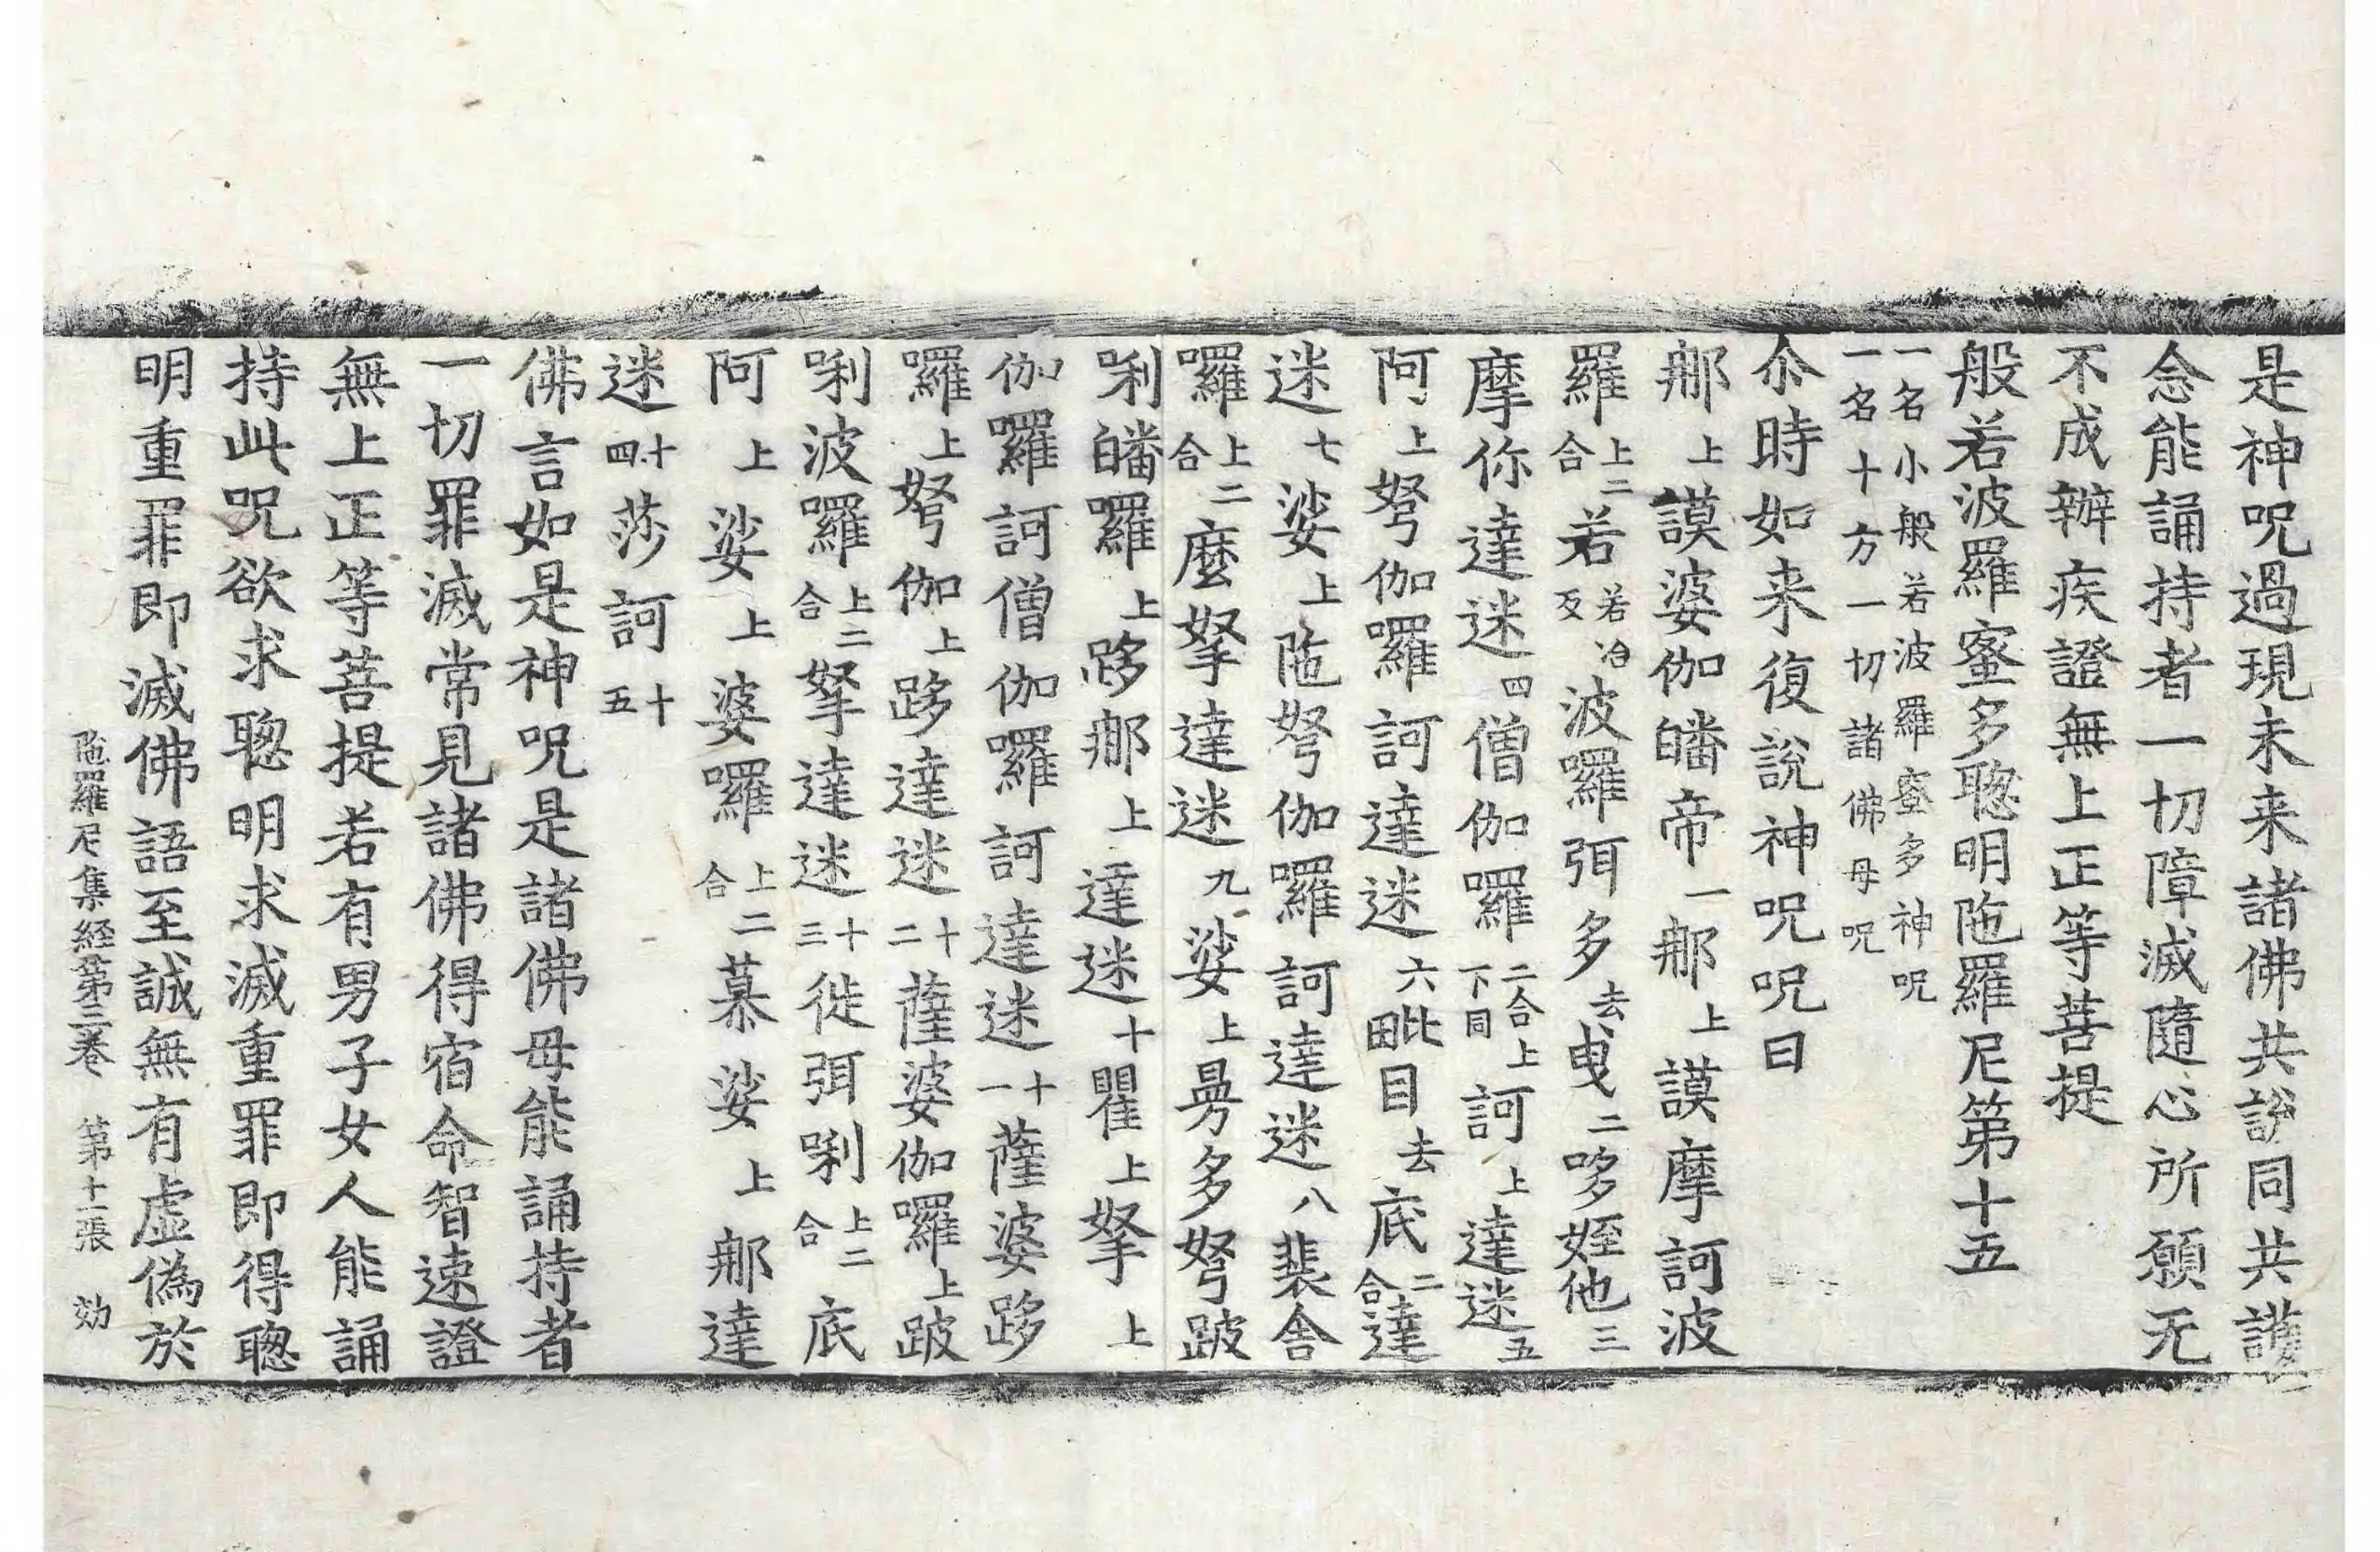 是神呪過現未来諸佛共說同共護
念能誦持者一切障滅隨心所願无
不成辦疾證無上正等菩提
般若波羅蜜多聦明陁羅尼第十五
一名小般若波羅蜜多神呪
一名十方一切諸佛母呪
尒時如来復說神呪呪曰
那上謨婆伽皤帝一那上謨摩訶波
羅上二合若若冶反波囉弭多去曳二哆姪他三
摩你達迷四僧伽囉二合上下同訶上達迷五
阿上弩伽囉訶達迷六毗目去底二合達
迷七娑上陁弩伽囉訶達迷八裴舍
囉上二合麼拏達迷九娑上曼多弩跛
唎皤囉上跢那上達迷十瞿上拏上
伽囉訶僧伽囉訶達迷十一薩婆跢
囉上弩伽上跢達迷十二薩婆伽囉上跛
唎波囉上二合拏達迷十三徙弭唎上二合底
阿上娑上婆囉上二合慕娑上那達
迷十四莎訶十五
佛言如是神呪是諸佛母能誦持者
一切罪滅常見諸佛得宿命智速證
無上正等菩提若有男子女人能誦
持此呪欲求聦明求滅重罪即得聦
明重罪即滅佛語至誠無有虛偽於
陁羅尼集経第三卷 第十一張 効